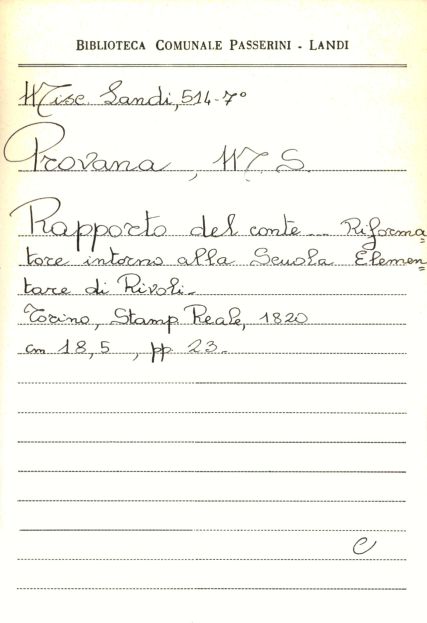 BIBLIOTECA COMUNALE PASSERINI - LANDI
Misc. Landi, 514-7°
Provana, M. S.
Rapporto del conte... Riforma=
tore intorno alla Scuola Elemen=
tare di Rivoli.
Torino, Stamp. Reale, 1820
cm 18,5 , pp. 23.
C